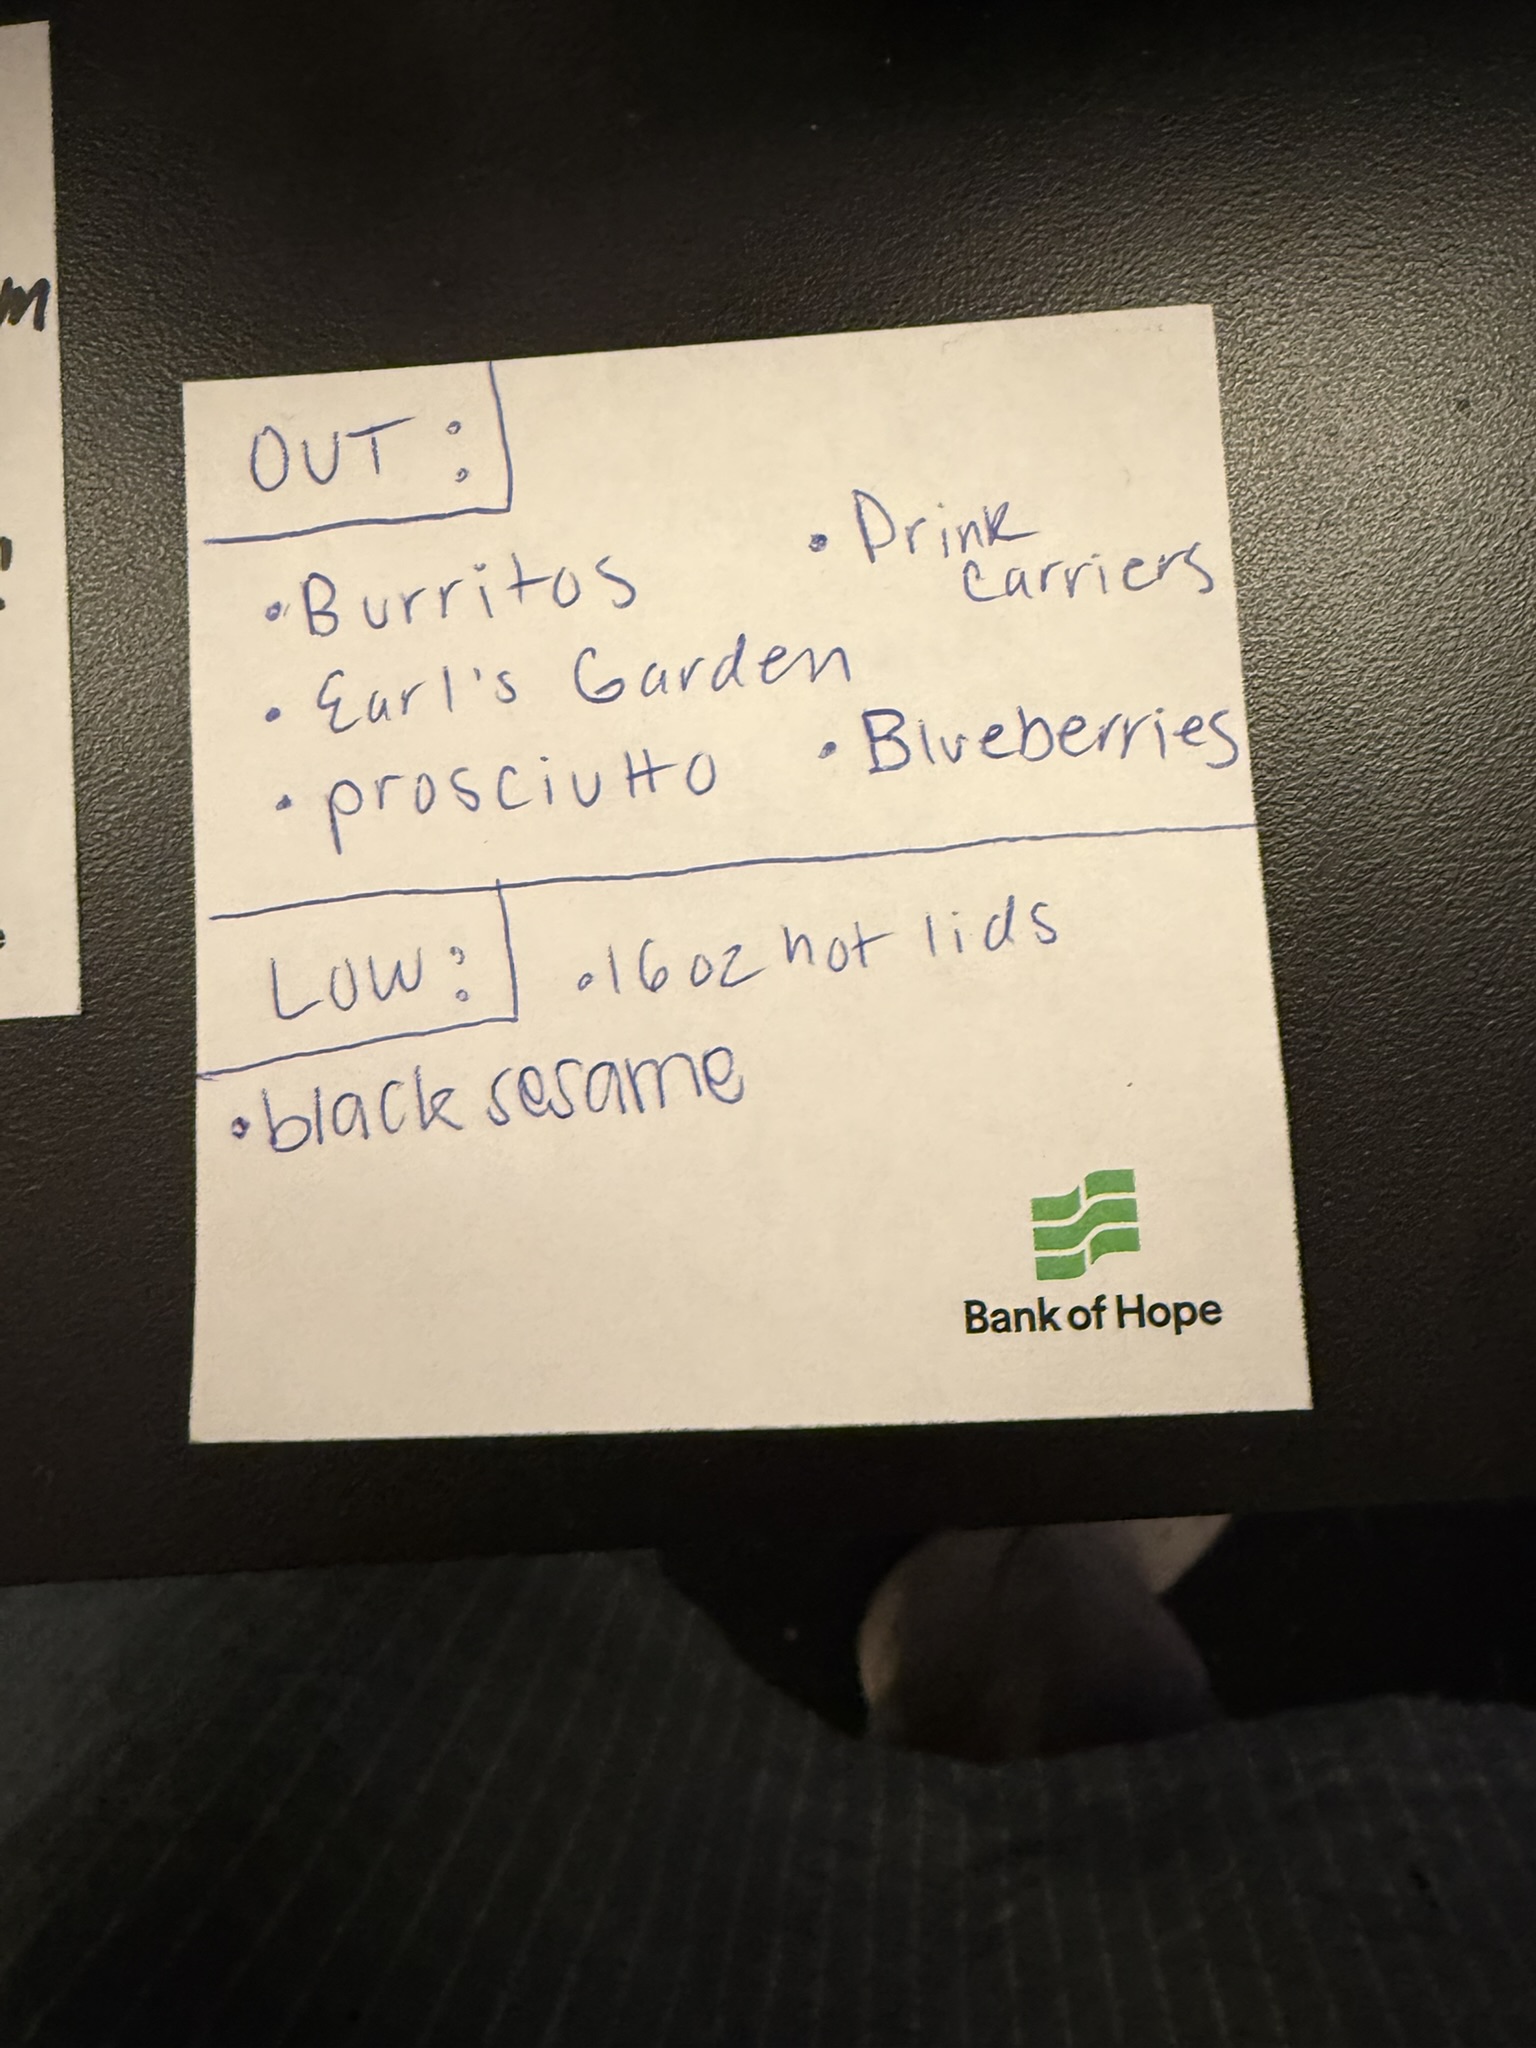 OUT:
• Burritos
• Drink
carriers
• Earl's Garden
• prosciutto
• Blueberries
LOW:
• 16 oz hot lids
• black sesame
Bank of Hope
m